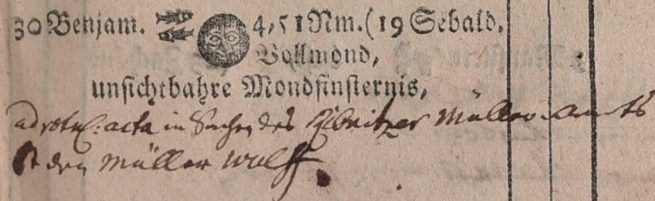 30 Benjam. 4,51 Nm. (19 Sebald.
Vollmond,
unsichtbahre Mondfinsternis,
acta in des Müller Amts
den Müller Wulff.